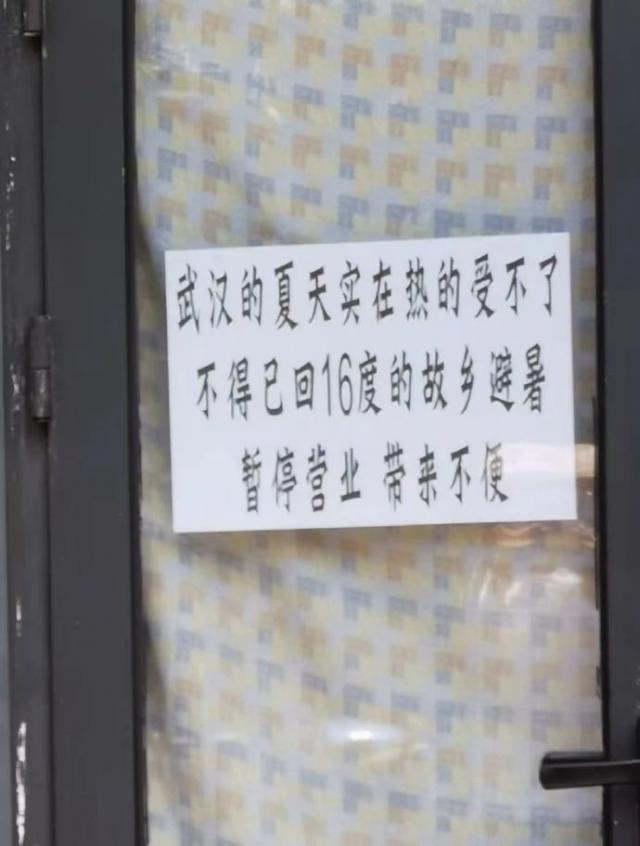 武汉的夏天实在热的受不了
不得已回16度的故乡避暑
暂停营业 带来不便